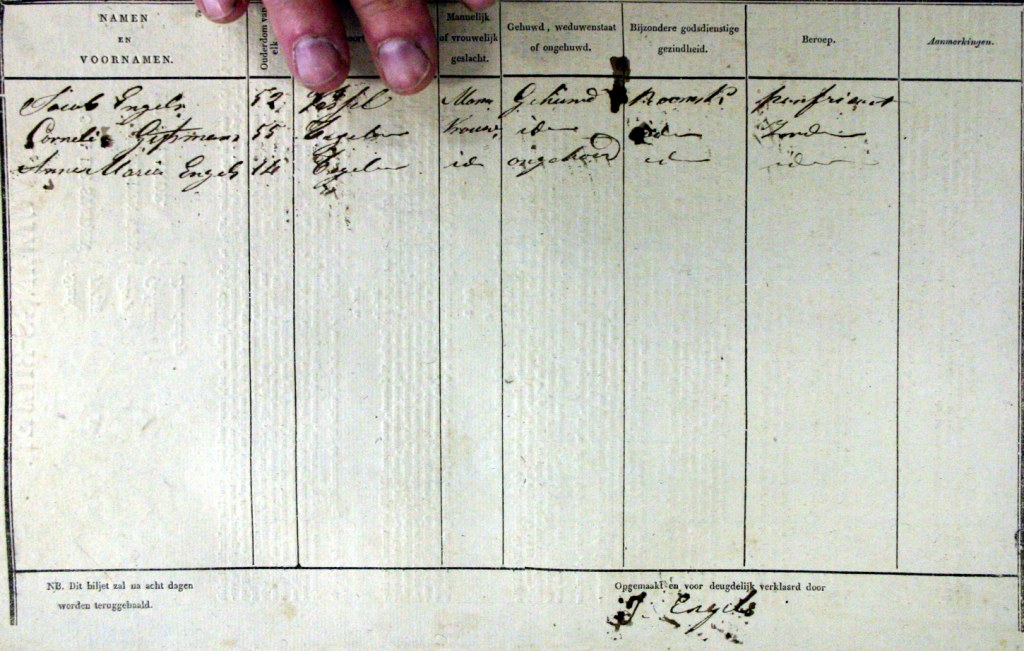 NAMEN EN VOORNAMEN. Ouderdom van elk Mannelijk of vrouwelijk geslacht. Gehuwd, weduwenstaat of ongehuwd. Bijzondere godsdienstige gezindheid. Beroep. Aanmerkingen.
Jacob Engels 52 Man Gehuwd
Cornelia 55 Vrouw id
Anna Maria Engels 14 id ongehuwd id id
NB. Dit biljet zal na acht dagen worden teruggehaald.
Opgemaakt en voor deugdelijk verklaard door
J Engels